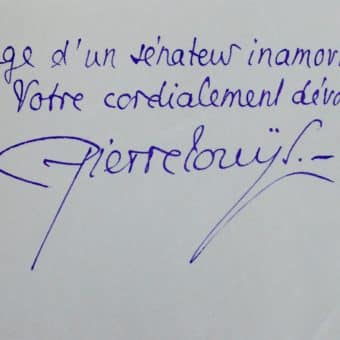 ge d'un sénateur inamovi
Votre cordialement dévo
Pierre Louÿs.–